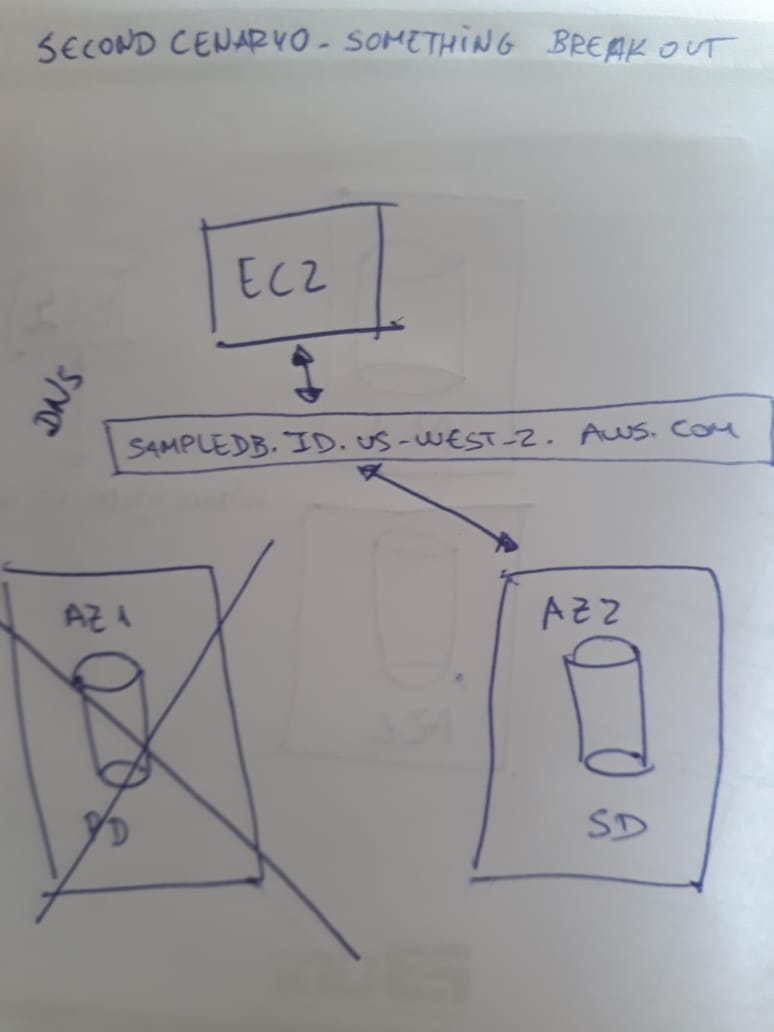 SECOND CENARYO - SOMETHING BREAK OUT
EC2
DNS
SAMPLEDB. ID. US-WEST-2. AWS. COM
AZ1
AZ2
PD
SD